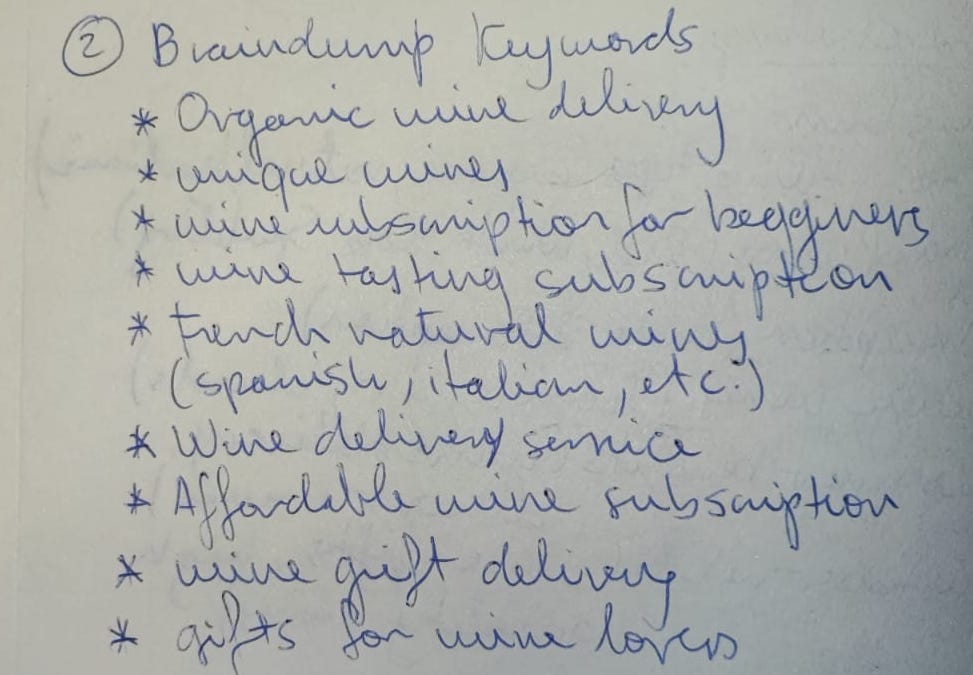 ② Braindump Keywords
* Organic wine delivery
* unique wines
* wine subscription for begginers
* wine tasting subscription
* French natural wines
(spanish, italian, etc.)
* Wine delivery service
* Affordable wine subscription
* wine gift delivery
* gifts for wine lovers